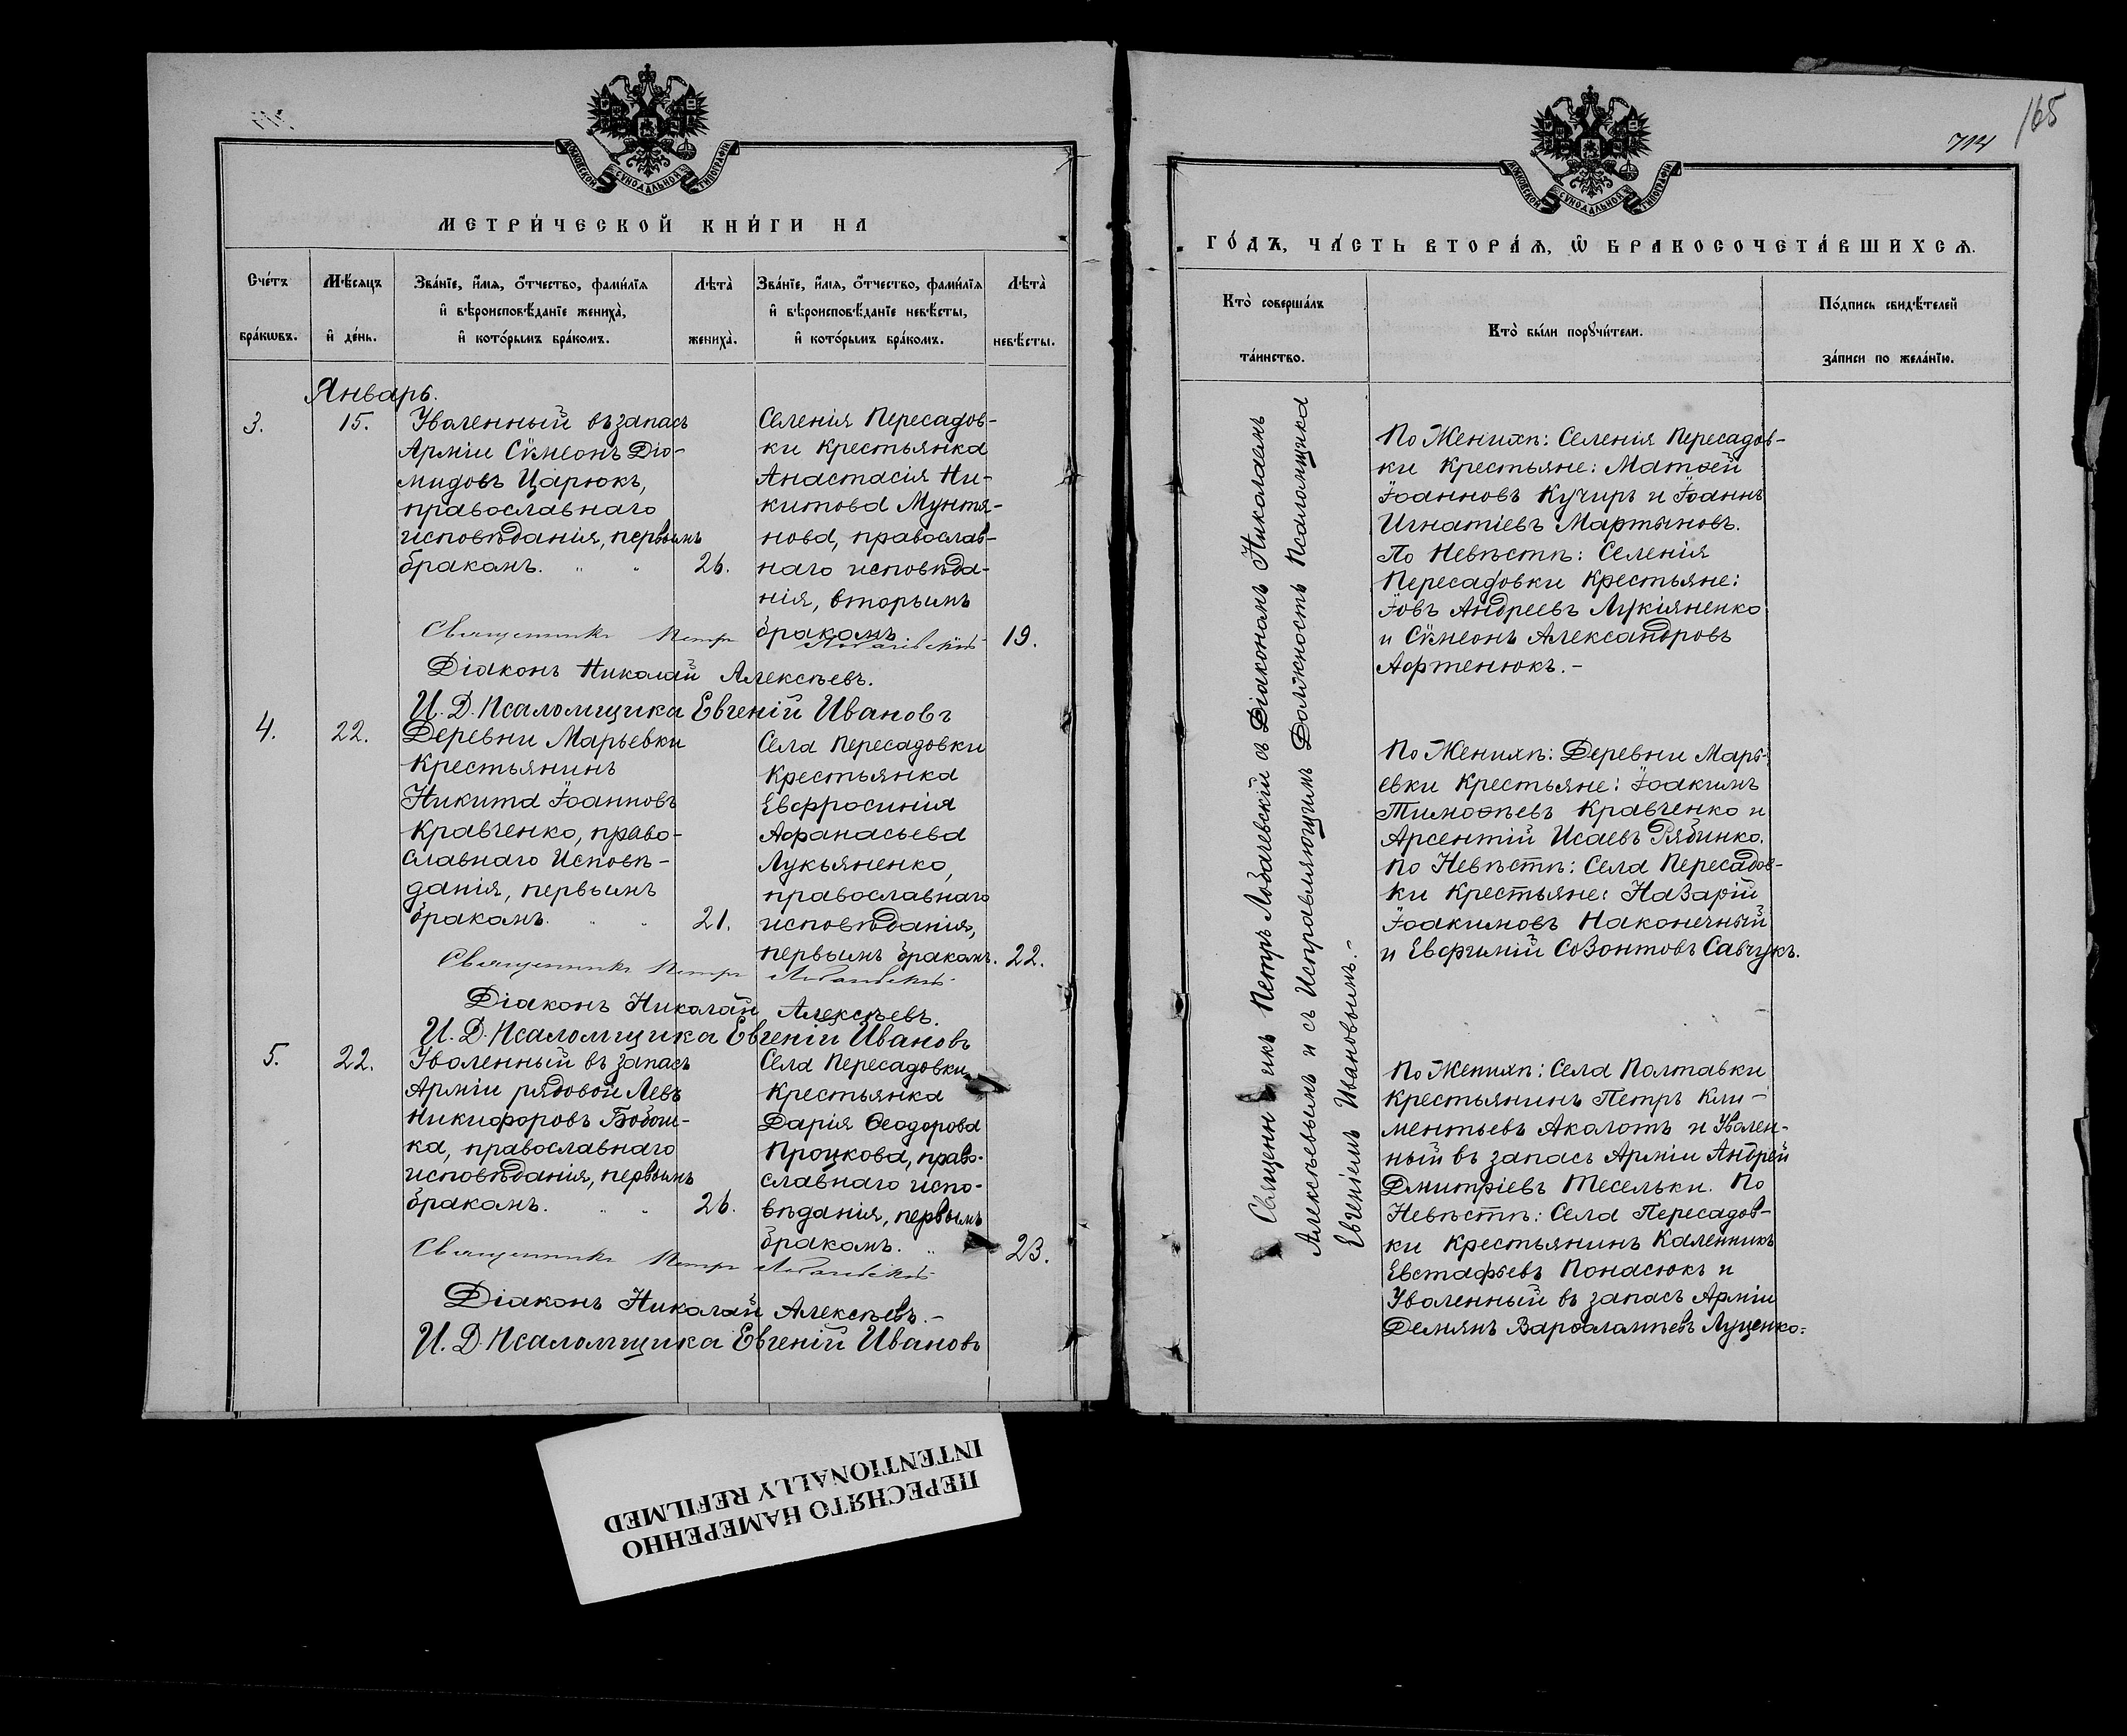 МОСКОВСКОЙ СѴНОДАЛЬНОЙ ТИПОГРАФІИ
МЕТРИ́ЧЕСКОЙ КНИ́ГИ НА
Сче́тъ бра́кѡвъ.
Мѣ́сяцъ и҆ де́нь.
Зва́нїе, и҆́мѧ, ѻ҆́тчество, фами́лїѧ
и҆ вѣроисповѣ́данїе жениха̀,
и҆ кото́рымъ бра́комъ.
Лѣта̀ жениха̀.
Зва́нїе, и҆́мѧ, ѻ҆́тчество, фами́лїѧ
и҆ вѣроисповѣ́данїе невѣ́сты,
и҆ кото́рымъ бра́комъ.
Лѣта̀ невѣ́сты.
Январь.
3.
15.
Уволенный въ запасъ
Арміи Сѵмеонъ Діо-
мидовъ Царюкъ,
православнаго
исповѣданія, первымъ
бракомъ. " "
26.
Селенія Пересадов-
ки Крестьянка
Анастасія Ни-
китова Мунтя-
нова, православ-
наго исповѣда-
нія, вторымъ
бракомъ
19.
Священникъ Петръ Лобачевскій
Діаконъ Николай Алексѣевъ.
И. Д. Псаломщика Евгеній Ивановъ
4.
22.
Деревни Марьевки
Крестьянинъ
Никита Іоанновъ
Кравченко, право-
славнаго Исповѣ-
данія, первымъ
бракомъ. " "
21.
Села Пересадовки
Крестьянка
Евфросинія
Афанасьева
Лукьяненко,
православнаго
исповѣданія,
первымъ бракомъ.
22.
Священникъ Петръ Лобачевскій
Діаконъ Николай Алексѣевъ.
И. Д. Псаломщика Евгеній Ивановъ
5.
22.
Уволенный въ запасъ
Арміи рядовой Левъ
Никифоровъ Бобош-
ка, православнаго
исповѣданія, первымъ
бракомъ. " "
26.
Села Пересадовки
Крестьянка
Дарія Ѳеодорова
Процкова, право-
славнаго испо-
вѣданія, первымъ
бракомъ. "
23.
Священникъ Петръ Лобачевскій
Діаконъ Николай Алексѣевъ.-
И. Д. Псаломщика Евгеній Ивановъ
165
714
МОСКОВСКОЙ СѴНОДАЛЬНОЙ ТИПОГРАФІИ
ГО́ДЪ, ЧА́СТЬ ВТОРА́Ѧ, Ѡ҆ БРАКОСОЧЕТА́ВШИХСѦ.
Кто̀ соверша́лъ та́инство.
Кто̀ бы́ли порꙋчи́тели.
По́дпись свидѣ́телей
за́писи по жела́нїю.
Священникъ Петръ Лобачевскій съ Діакономъ Николаемъ
Алексѣевымъ и съ Исправляющимъ Должность Псаломщика
Евгеніемъ Ивановымъ.-
По Женихѣ: Селенія Пересадов-
ки Крестьяне: Матѳей
Іоанновъ Кучиръ и Іоаннъ
Игнатіевъ Мартыновъ.
По Невѣстѣ: Селенія
Пересадовки Крестьяне:
Іовъ Андреевъ Лукіяненко
и Сѵмеонъ Александровъ
Афтенюкъ.-
По Женихѣ: Деревни Марь-
евки Крестьяне: Іоакимъ
Тимоѳѣевъ Кравченко и
Арсентій Исаевъ Рябинко.
По Невѣстѣ: Села Пересадов-
ки Крестьяне: Назарій
Іоакимовъ Наконечный
и Евфимій Созонтовъ Савчукъ.
По Женихѣ: Села Полтавки
Крестьянинъ Петръ Кли-
ментьевъ Акалотъ и Уволен-
ный въ запасъ Арміи Андрей
Дмитріевъ Тесельки. По
Невѣстѣ: Села Пересадов-
ки Крестьянинъ Каленникъ
Евстафьевъ Понасюкъ и
Уволенный въ запасъ Арміи
Демянъ Варѳаламѣевъ Луценко.
ПЕРЕСНЯТО НАМЕРЕННО
INTENTIONALLY REFILMED